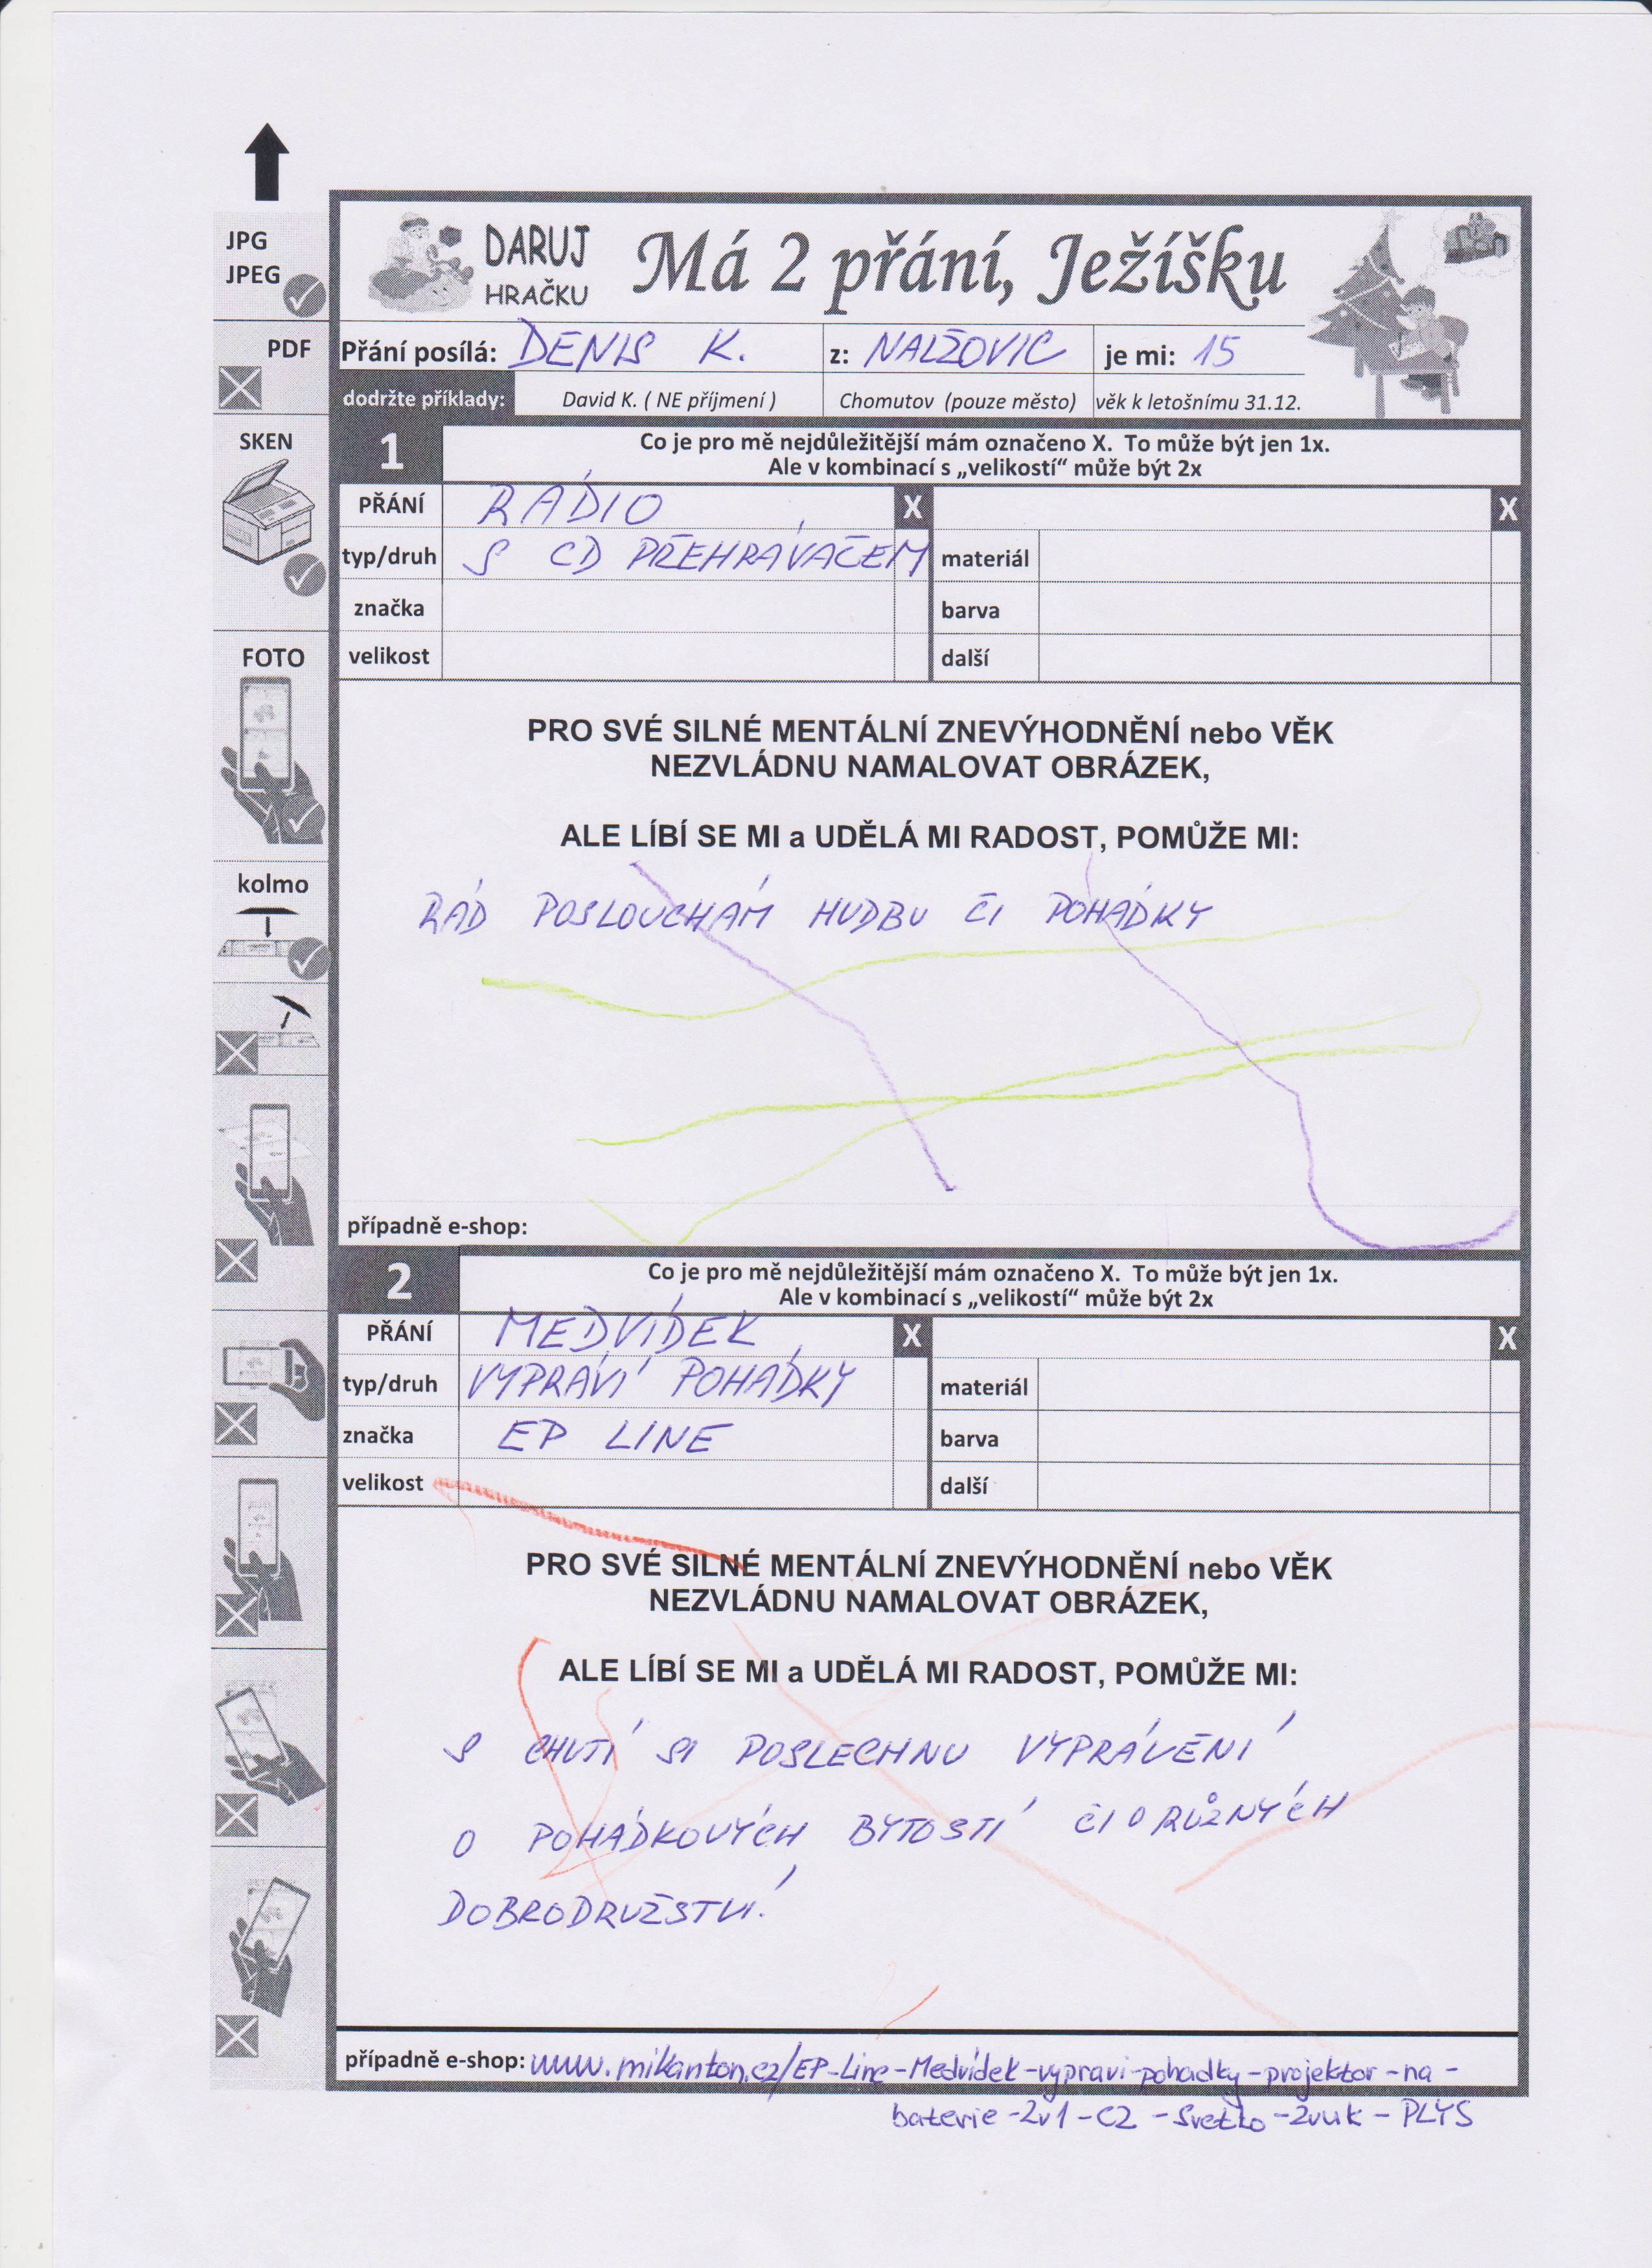 JPG
JPEG
PDF
SKEN
FOTO
kolmo
DARUJ
HRAČKU
Má 2 přání, Ježíšku
Přání posílá: DENIS K. z: NALŽOVIC je mi: 15
dodržte příklady: David K. ( NE příjmení ) Chomutov (pouze město) věk k letošnímu 31.12.
1 Co je pro mě nejdůležitější mám označeno X. To může být jen 1x.
Ale v kombinací s „velikostí“ může být 2x
PŘÁNÍ RÁDIO X X
typ/druh S CD PŘEHRÁVAČEM materiál
značka barva
velikost další
PRO SVÉ SILNÉ MENTÁLNÍ ZNEVÝHODNĚNÍ nebo VĚK
NEZVLÁDNU NAMALOVAT OBRÁZEK,
ALE LÍBÍ SE MI a UDĚLÁ MI RADOST, POMŮŽE MI:
RÁD POSLOUCHÁM HUDBU ČI POHÁDKY
případně e-shop:
2 Co je pro mě nejdůležitější mám označeno X. To může být jen 1x.
Ale v kombinací s „velikostí“ může být 2x
PŘÁNÍ MEDVÍDEK X X
typ/druh VYPRÁVÍ POHÁDKY materiál
značka EP LINE barva
velikost další
PRO SVÉ SILNÉ MENTÁLNÍ ZNEVÝHODNĚNÍ nebo VĚK
NEZVLÁDNU NAMALOVAT OBRÁZEK,
ALE LÍBÍ SE MI a UDĚLÁ MI RADOST, POMŮŽE MI:
S CHUTÍ SI POSLECHNU VYPRÁVĚNÍ
O POHÁDKOVÝCH BYTOSTÍ ČI O RŮZNÝCH
DOBRODRUŽSTVÍ.
případně e-shop: www.mikanton.cz/EP-Line-Medvídek-vypravi-pohadky-projektor-na-
baterie-2v1-CZ-Svetlo-zvuk-PLYS